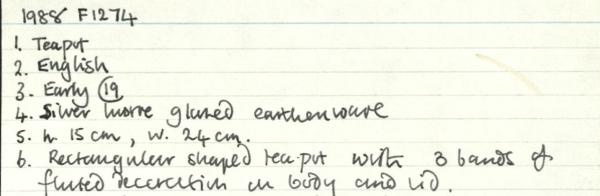 1988 F1274
1. Teapot
2. English
3. Early 19
4. Silver lustre glazed earthenware
5. h. 15 cm, w. 24 cm.
6. Rectangular shaped tea-pot with 3 bands of
fluted decoration on body and lid.